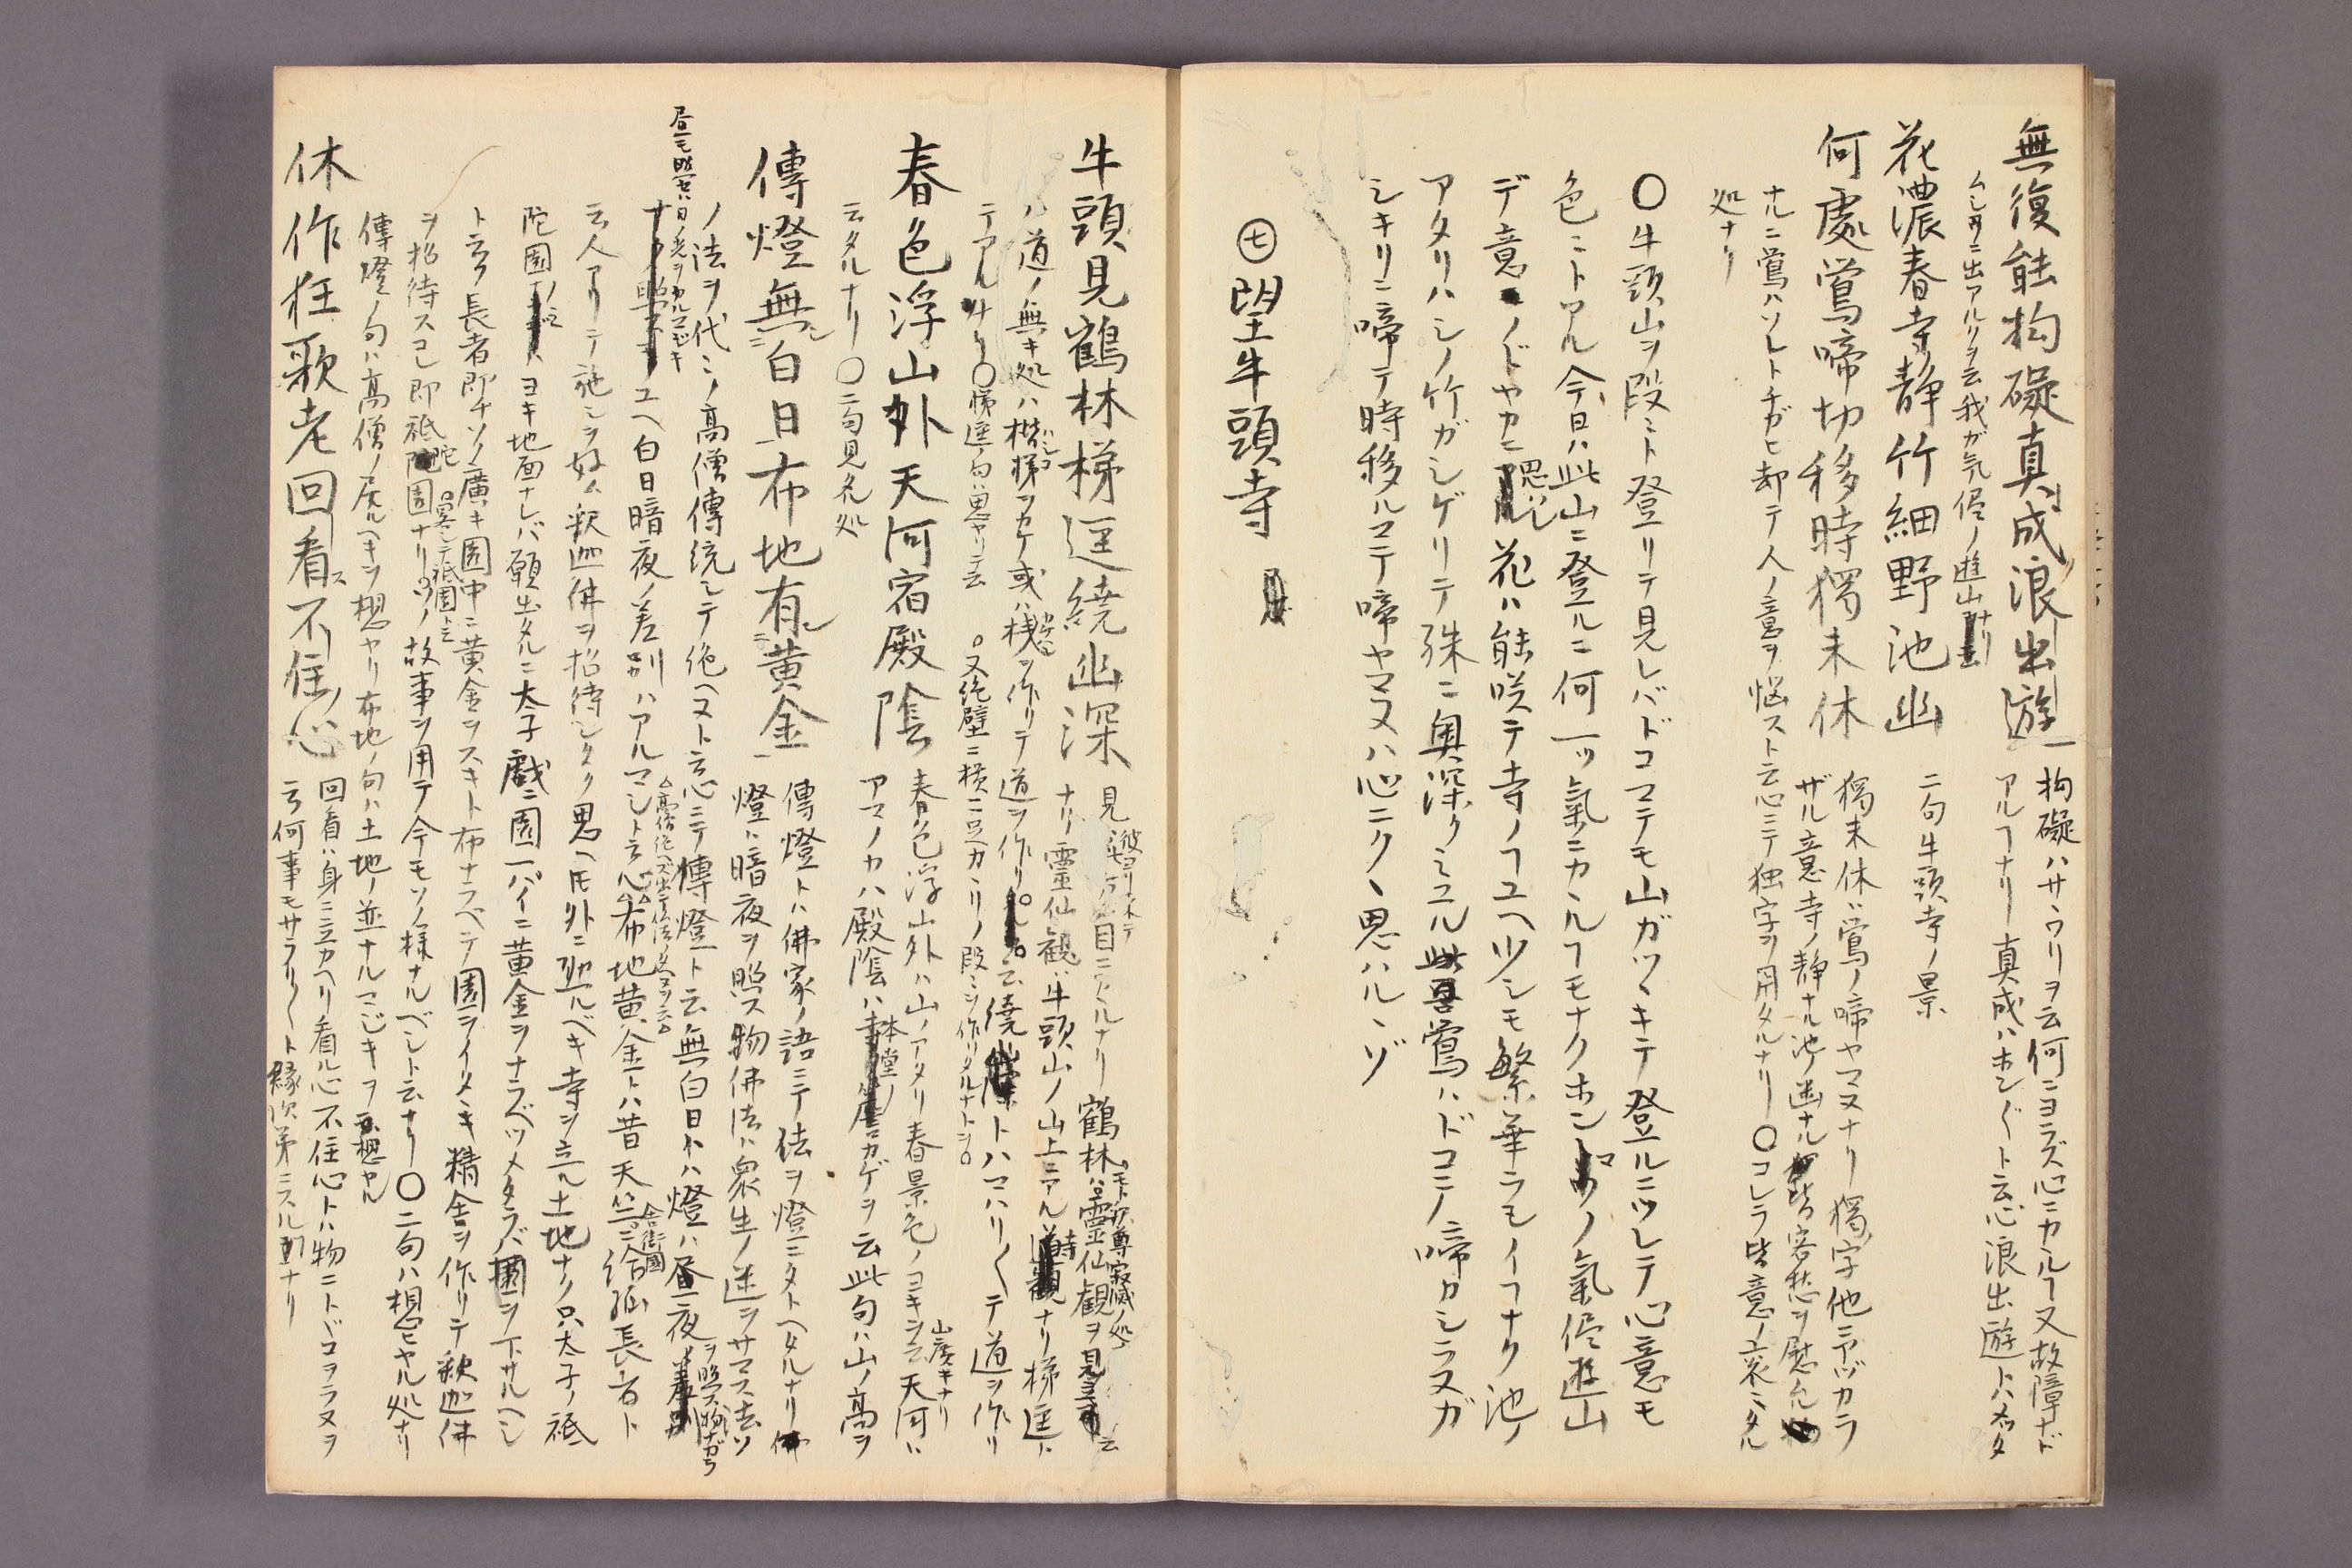 無復能拘礙真成浪出遊
拘礙ハサワリヲ云何ニヨラズ心ニカカルヿ又故障ナド
アルヿナリ 真成ハホンニト云心浪出遊トハ
ムシヤウニ出アルクヲ云我ガ気侭ノ遊山ナリ
花濃春寺静竹細野池幽
二句牛頭寺ノ景
何處鶯啼切移時獨未休
獨未休ハ鶯ノ啼ヤマヌナリ獨字他ニアヅカラ
ザル意寺ノ静ナル池ノ幽ナル皆客愁ヲ慰ム
ナルニ鶯ハソレトチガヒ却テ人ノ意ヲ悩スト云心ニテ独字ヲ用タルナリ〇コレラ皆意ノ裏ニタル
処ナリ
〇牛頭山ヲ段々ト登リテ見レバドコマテモ山ガツヾキテ登ルニツレテ心意モ
色々トアル今日ハ此山ニ登ルニ何一ツ氣ニカカルヿモナクホンマノ氣侭遊山
デ意ノドヤカニ思ハレル花ハ能咲テ寺ノヿユヘ少シモ繁華ラモイヿナク池ノ
アタリハシノ竹ガシゲリテ殊ニ奥深クミユル鶯ハドコニノ啼カシラヌガ
シキリニ啼テ時移ルマテ啼ヤマヌハ心ニクヽ思ハルヽゾ
㊆望牛頭寺
牛頭見鶴林梯逕繞幽深
見 目ニカヽルナリ 鶴林ハ靈仙観ヲ見 云
モト釈尊寂滅ノ処
ナリ靈仙観ハ牛頭山ノ山上ニアル寺ナリ梯逕ト
ハ道ノ無キ処ハ楷梯ヲカケ或ハ棧ヲ作リテ道ヲ作リ 云繞トハマハリ〱テ道ヲ作リ
テアル 〇梯逕ノ句ハ思ヤリテ云
又絶壁ニ横ニ ノ段ヲ作リタルナト云
春色浮山外天河宿殿陰
春色浮山外ハ山ノアタリ春景色ノヨキヲ云天河ハ
山廣キナリ
アマノカハ殿陰ハ本堂ノカゲヲ云此句ハ山ノ高ヲ
云タルナリ〇二句見光処
傳燈無白日布地有黄金
傳燈トハ佛家ノ語ニテ法ヲ燈ニタトヘタルナリ
燈ハ暗夜ヲ照ス物佛法ハ衆生ノ迷ヲサマス法ソ
ノ法ヲ代々ノ高僧傳統シテ絶ヘヌト云心ニテ傳燈ト云無白日トハ燈ハ昼夜ヲ照ス物ナガラ
昼モ照セハ日ノ光ヲカルマジキ
ユヘ白日暗夜ノ差別ハアルマシト云心布地黄金トハ昔天竺ニ給孤長者ト
舎衛國
云人アリテ施シヲ好ム釈迦佛ヲ招待シタク思ヘ𪜈外ニ然ルベキ寺ヲ立ル土地ナク只太子ノ祇
陀園ノミヨキ地面ナレバ願出タルニ太子戯ニ園一パイニ黄金ヲナラベツメタラバ園ヲ下サルヘシ
ト云フ長者即チソノ廣キ園中ニ黄金ヲスキト布ナラベテ園ヲイタヾキ精舎ヲ作リテ釈迦佛
ヲ招待スコレ即祇陀園ナリコノ故事ヲ用テ今モソノ様ナルベシト云ナリ〇二句ハ想ヒヤル処ナリ
畧シテ祇園ト云
傳燈ノ句ハ高僧ノ居ルヘキヲ想ヤリ布地ノ句ハ土地ノ並ナルマジキヲ想ヤル
休作狂歌老回看不住心
回看ハ身ニ立カヘリ看ル心不住心トハ物ニトドコヲラヌヲ
云何事モサラリ〱ト縁次第ニスルナリ